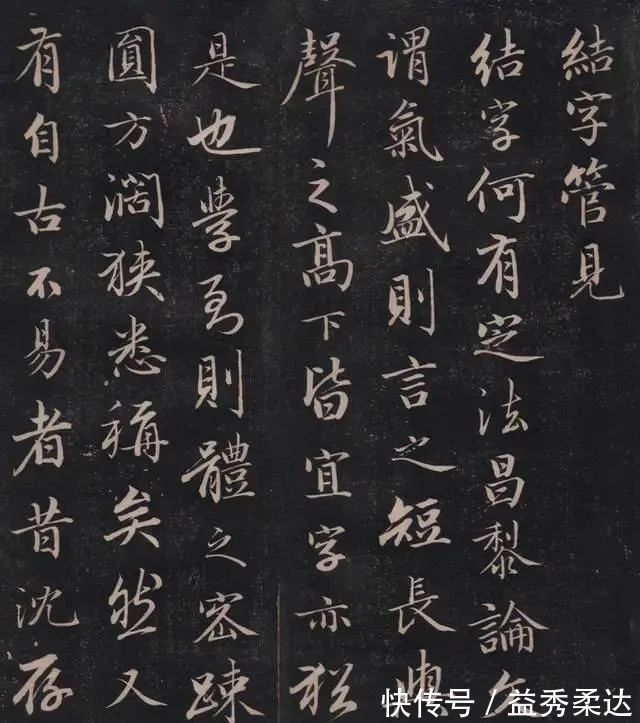 結字管見
結字何有定法昌黎論文
謂氣盛則言之短長與
聲之髙下皆宜字亦猶
是也學到則體之密踈
圓方濶狹悉稱矣然又
有自古不易者昔沈存
快传号 / 益秀柔达